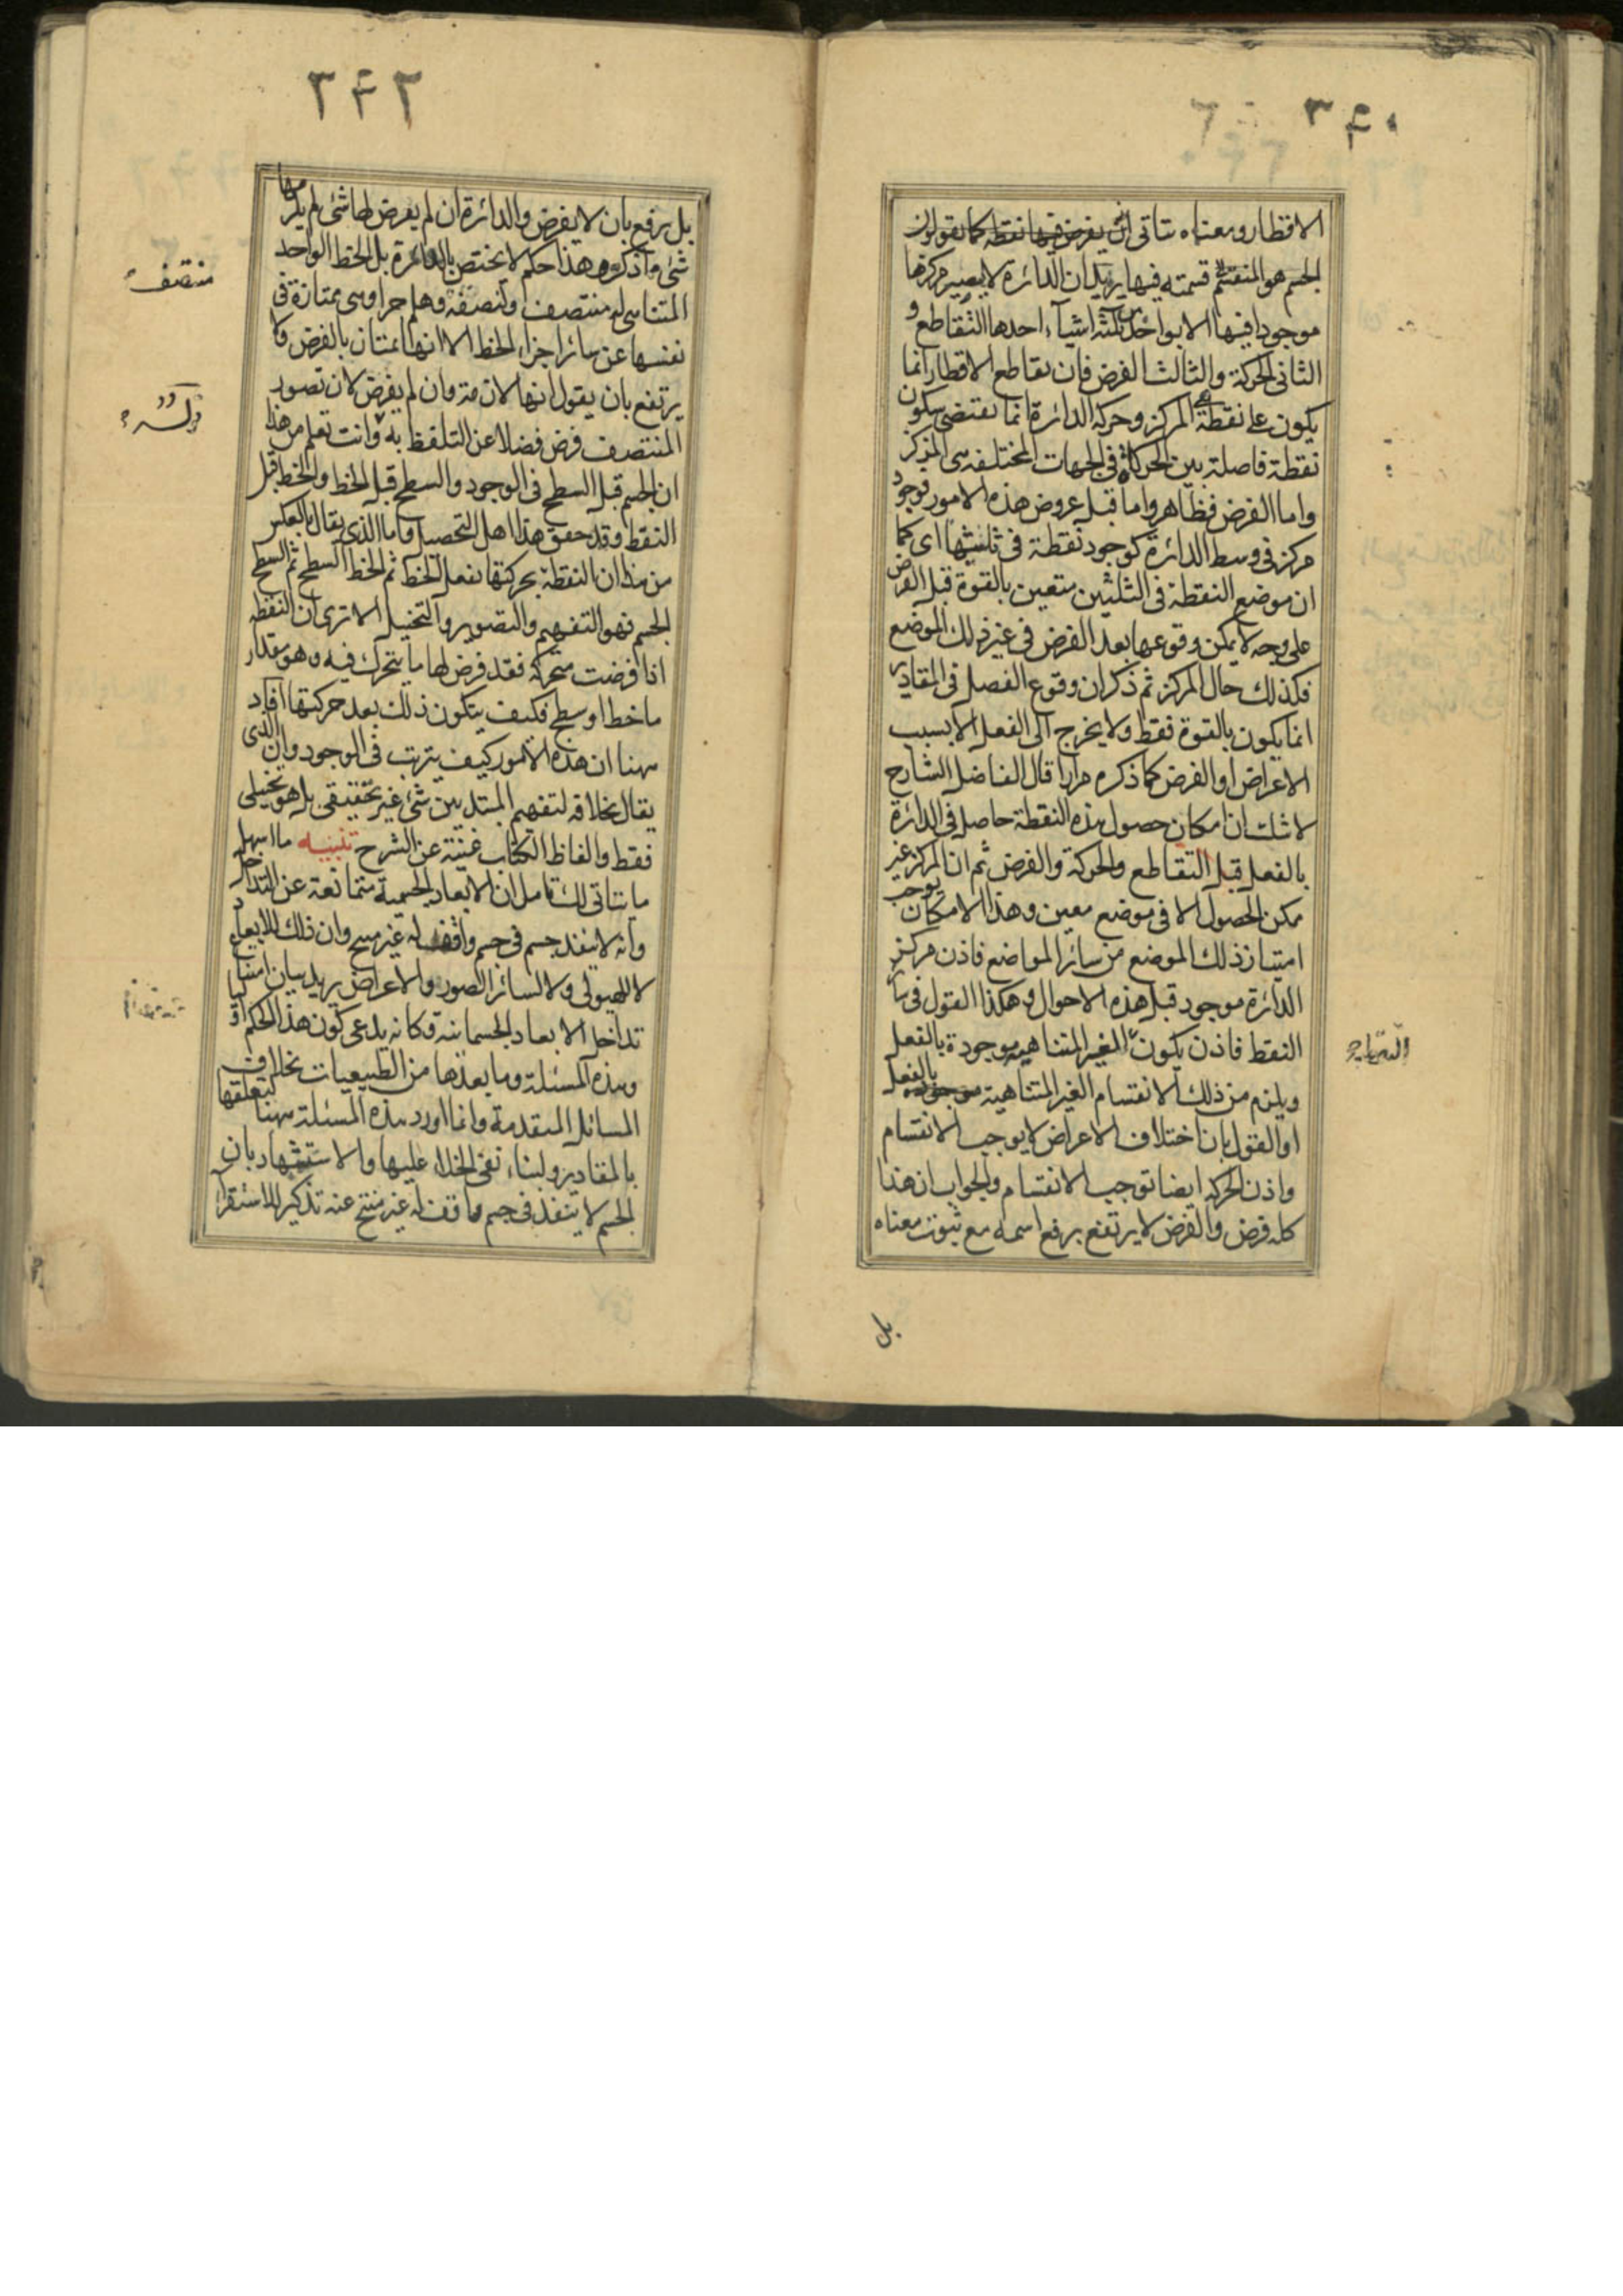 ٣٤٠
الاقطار ومعناه يتاتى ان يفرض فيها نقطة كما يقولون
الجسم هو المنقسم قسمته فيها يريد ان الدائرة لا يصير مركزها
موجودا فيها الا بواحد من ثلثة اشياء احدها التقاطع و
الثانى الحركة والثالث الفرض فان تقاطع الاقطار انما
يكون على نقطة هى المركز وحركة الدائرة انما تقتضى سكون
نقطة فاصلة بين الحركات فى الجهات المختلفة هى المركز
واما الفرض فظاهر واما قبل عروض هذه الامور فوجود
مركز فى وسط الدائرة كوجود نقطة فى ثلثيها اى كما
ان موضع النقطة فى الثلثين متعين بالقوة قبل الفرض
على وجه لا يمكن وقوعها بعد الفرض فى غير ذلك الموضع
فكذلك حال المركز ثم ذكر ان وقوع الفصل فى المقادير
انما يكون بالقوة فقط ولا يخرج الى الفعل الا بسبب
الاعراض او الفرض كما ذكره مرارا قال الفاضل الشارح
لا شك ان امكان حصول هذه النقطة حاصل فى الدائرة
بالفعل قبل التقاطع والحركة والفرض ثم ان المركز غير
ممكن الحصول الا فى موضع معين وهذا الامكان يوجب
امتياز ذلك الموضع من سائر المواضع فاذن مركز
الدائرة موجود قبل هذه الاحوال وهكذا القول فى سائر
النقط فاذن يكون الغير المتناهية موجودة بالفعل
ويلزم من ذلك الانقسام الغير المتناهية بالفعل
او القول بان اختلاف الاعراض لا يوجب الانقسام
واذن الحركة ايضا توجب الانقسام والجواب ان هذا
كله فرض والفرض لا يرتفع برفع اسمه مع ثبوت معناه
بل
٣٤٢
بل يرفع بان لا يفرض والدائرة ان لم يعرض لها شئ لم يكن مها
شئ وما ذكروه هذا حكم لا يختص بالدائرة بل الخط الواحد
المتناهى له منتصف ولنصفه وهلم جرا وهى ممتازة فى
نفسها عن سائر اجزاء الخط الا انها امتان بالفرض ولا
يرتفع بان يقول انها لازمة وان لم يفرض لان تصور
المنتصف فرض فضلا عن التلفظ به وانت تعلم من هذا
ان الجسم قبل السطح فى الوجود والسطح قبل الخط والخط قبل
النقط وقد حقق هذا اهل التحصيل واما الذى يقال بالعكس
من هذا ان النقطة بحركتها تفعل الخط ثم الخط السطح ثم السطح
الجسم فهو للتفهيم والتصوير والتخييل الا ترى ان النقطة
اذا فرضت متحركة فقد فرض لها ما يتحرك فيه وهو مقدار
ما خط او سطح فكيف يتكون ذلك بعد حركتها افاد
ههنا ان هذه الامور كيف يترتب فى الوجود وان الذى
يقال بخلافه لتفهيم المبتدئين شئ غير تحقيقى بل هو تخيلى
فقط والفاظ الكتاب غنية عن الشرح تنبيه ما اسهل
ما يتاتى لك تامل ان الابعاد الجسمية متمانعة عن التداخل
وانه لا ينفذ جسم فى جسم واقف له غير متنح وان ذلك للابعاد
لا للهيولى ولا لسائر الصور والاعراض يريد بيان امتناع
تداخل الابعاد الجسمانية فكانه يدعى كون هذا الحكم اوليا
وهذه المسئلة وما بعدها من الطبيعيات بخلاف
المسائل المتقدمة وانما اورد هذه المسئلة ههنا لتعلقها
بالمقادير ولبناء نفى الخلاء عليها والاستشهاد بان
الجسم لا ينفذ فى جسم واقف له غير متنح عنه تذكير للاستقرا
منتصف